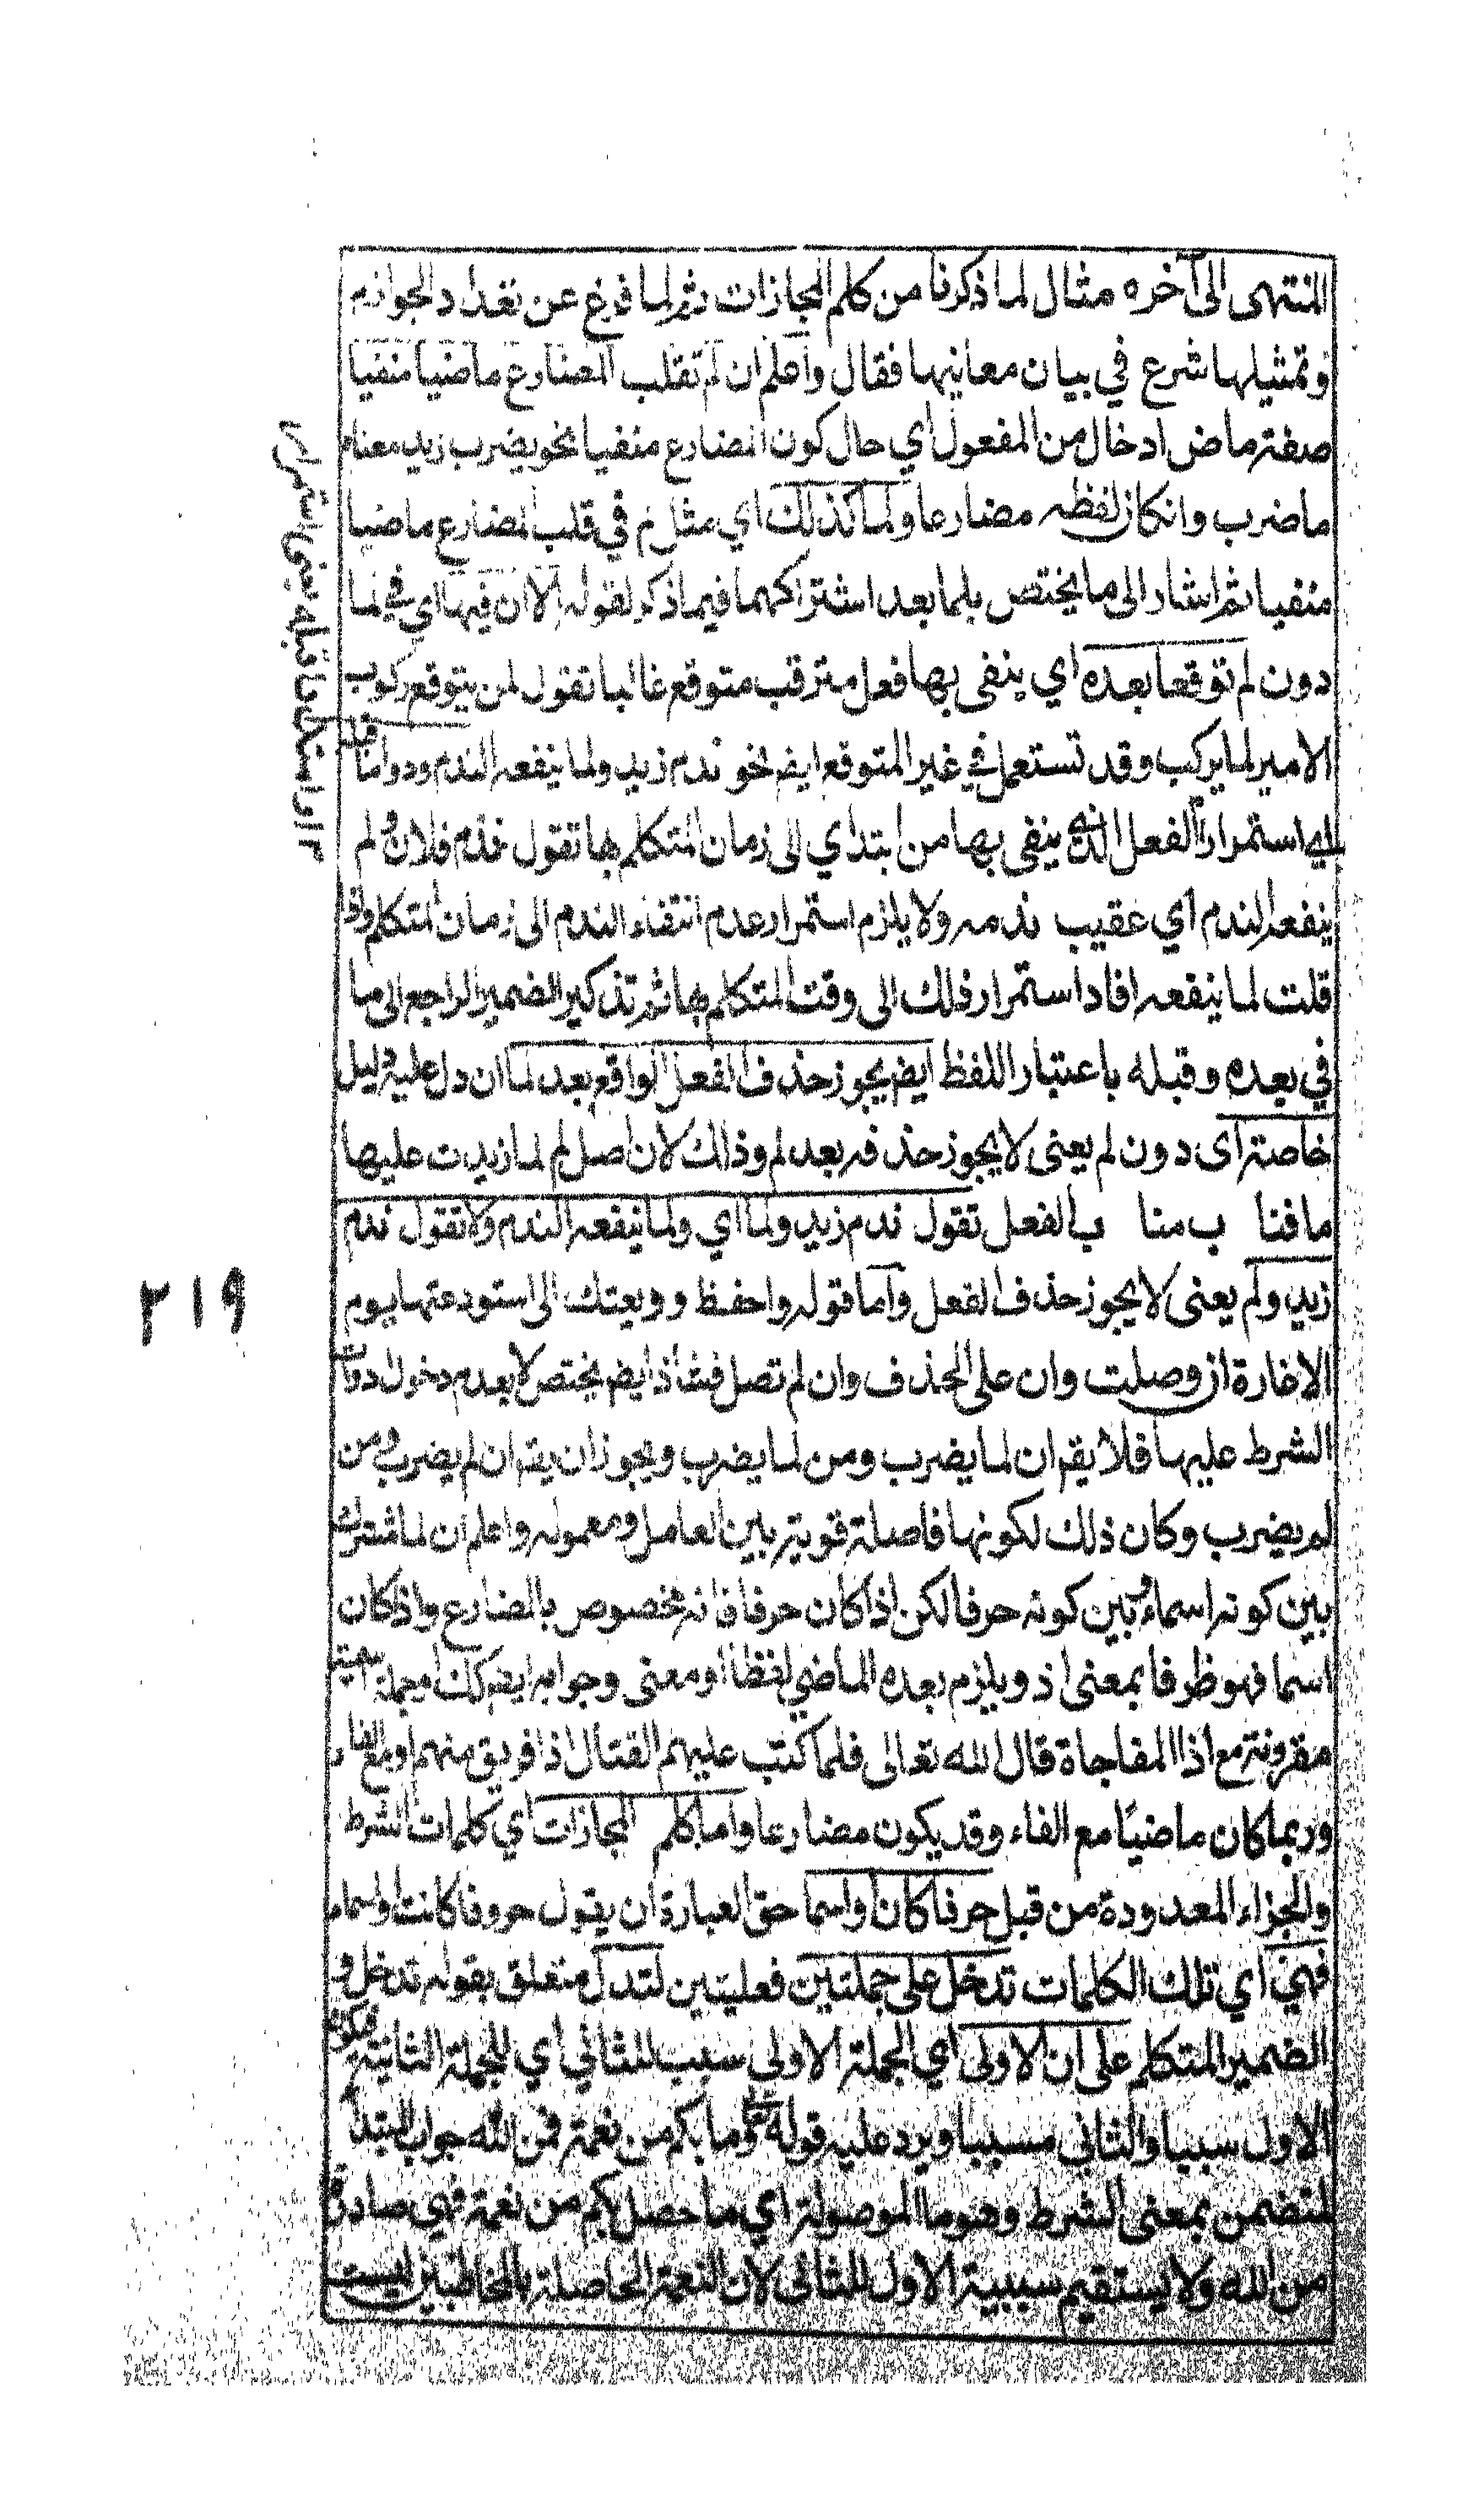 المنتهى الى آخره مثال لما ذكرنا من كلم المجازات ثم لما فرغ عن تعداد الجوازم
وتمثيلها شرع في بيان معانيها فقال واعلم ان لم تقلب المضارع ماضيا منفيا
صفة ماض ادخال من المفعول اي حال كون المضارع منفيا نحو يضرب زيد معناه
ما ضرب وانكان لفظه مضارعا ولما كذلك اي مثل لم في قلب المضارع ماضيا
منفيا ثم اشار الى ما يختص بلما بعد اشتراكهما فيما ذكر لقوله الا ان فيها اي في لما
دون لم توقعا بعده اي ينفى بها فعل مترقب متوقع غالبا تقول لمن يتوقع ركوب
الامير لما يركب وقد تستعمل في غير المتوقع ايضم نحو ندم زيد ولما ينفعه الندم ودواما قبله
اي استمرار الفعل الذي ينفى بها من ابتداي الى زمان المتكلم بها تقول ندم فلان ولم
ينفعه الندم اي عقيب ندمه ولا يلزم استمرار عدم انتفاء الندم الى زمان المتكلم واذا
قلت لما ينفعه افاد استمرار ذلك الى وقت المتكلم بها ثم تذكير الضمير الراجع الى ما
في بعده وقبله باعتبار اللفظ ايضم يجوز حذف الفعل الواقع بعد لما ان دل عليه دليل
خاصة اى دون لم يعنى لا يجوز حذفه بعد لم وذلك لان اصل لم لما زيدت عليها
ما فنا ب منا ب الفعل تقول ندم زيد ولما اي ولما ينفعه الندم ولا تقول ندم
زيد ولم يعنى لا يجوز حذف الفعل واما قوله واحفظ وديعتك الى استودعتها يوم
الاخارة ان وصلت وان على الحذف وان لم تصل فشاذ ايضم يختص لا بعدم دخول دوات
الشرط عليها فلا يقم ان لما يضرب ومن لما يضرب ويجوز ان يقم ان لم يضرب ومن
لم يضرب وكان ذلك لكونها فاصلة قوية بين العامل ومعموله واعلم ان لما مشترك
بين كونه اسماء وبين كونه حرفا لكن اذا كان حرفا فانه مخصوص بالمضارع واذا كان
اسما فهو ظرفا بمعنى اذ ويلزم بعده الماضي لفظا او معنى وجوابه ايضم كك او جملة اسمية
مقرونة مع اذا المفاجاة قال الله تعالى فلما كتب عليهم القتال اذا فريق منهم او مع الفاء
وربما كان ماضيا مع الفاء وقد يكون مضارعا واما كلم المجازات اي كلمات الشرط
والجزاء المعدودة من قبل حرفا كان او اسما حق العبارة ان يقول حروفا كانت او اسماء
فهي اي تلك الكلمات تدخل على جملتين فعليتين لتدل متعلق بقوله تدخل و
الضمير المتكلم على ان الاولى اي الجملة الاولى سبب للثاني اي للجملة الثانية فيكون
الاول سببا والثانى مسببا ويرد عليه قوله تعالى وما بكم من نعمة فمن الله جواب المبتدا
لتضمن بمعنى الشرط وهو ما الموصولة اي ما حصل بكم من نعمة فهي صادرة
من الله ولا يستقيم سببية الاول للثانى لان النعمة الحاصلة بالمخاطبين ليست
٢١٩